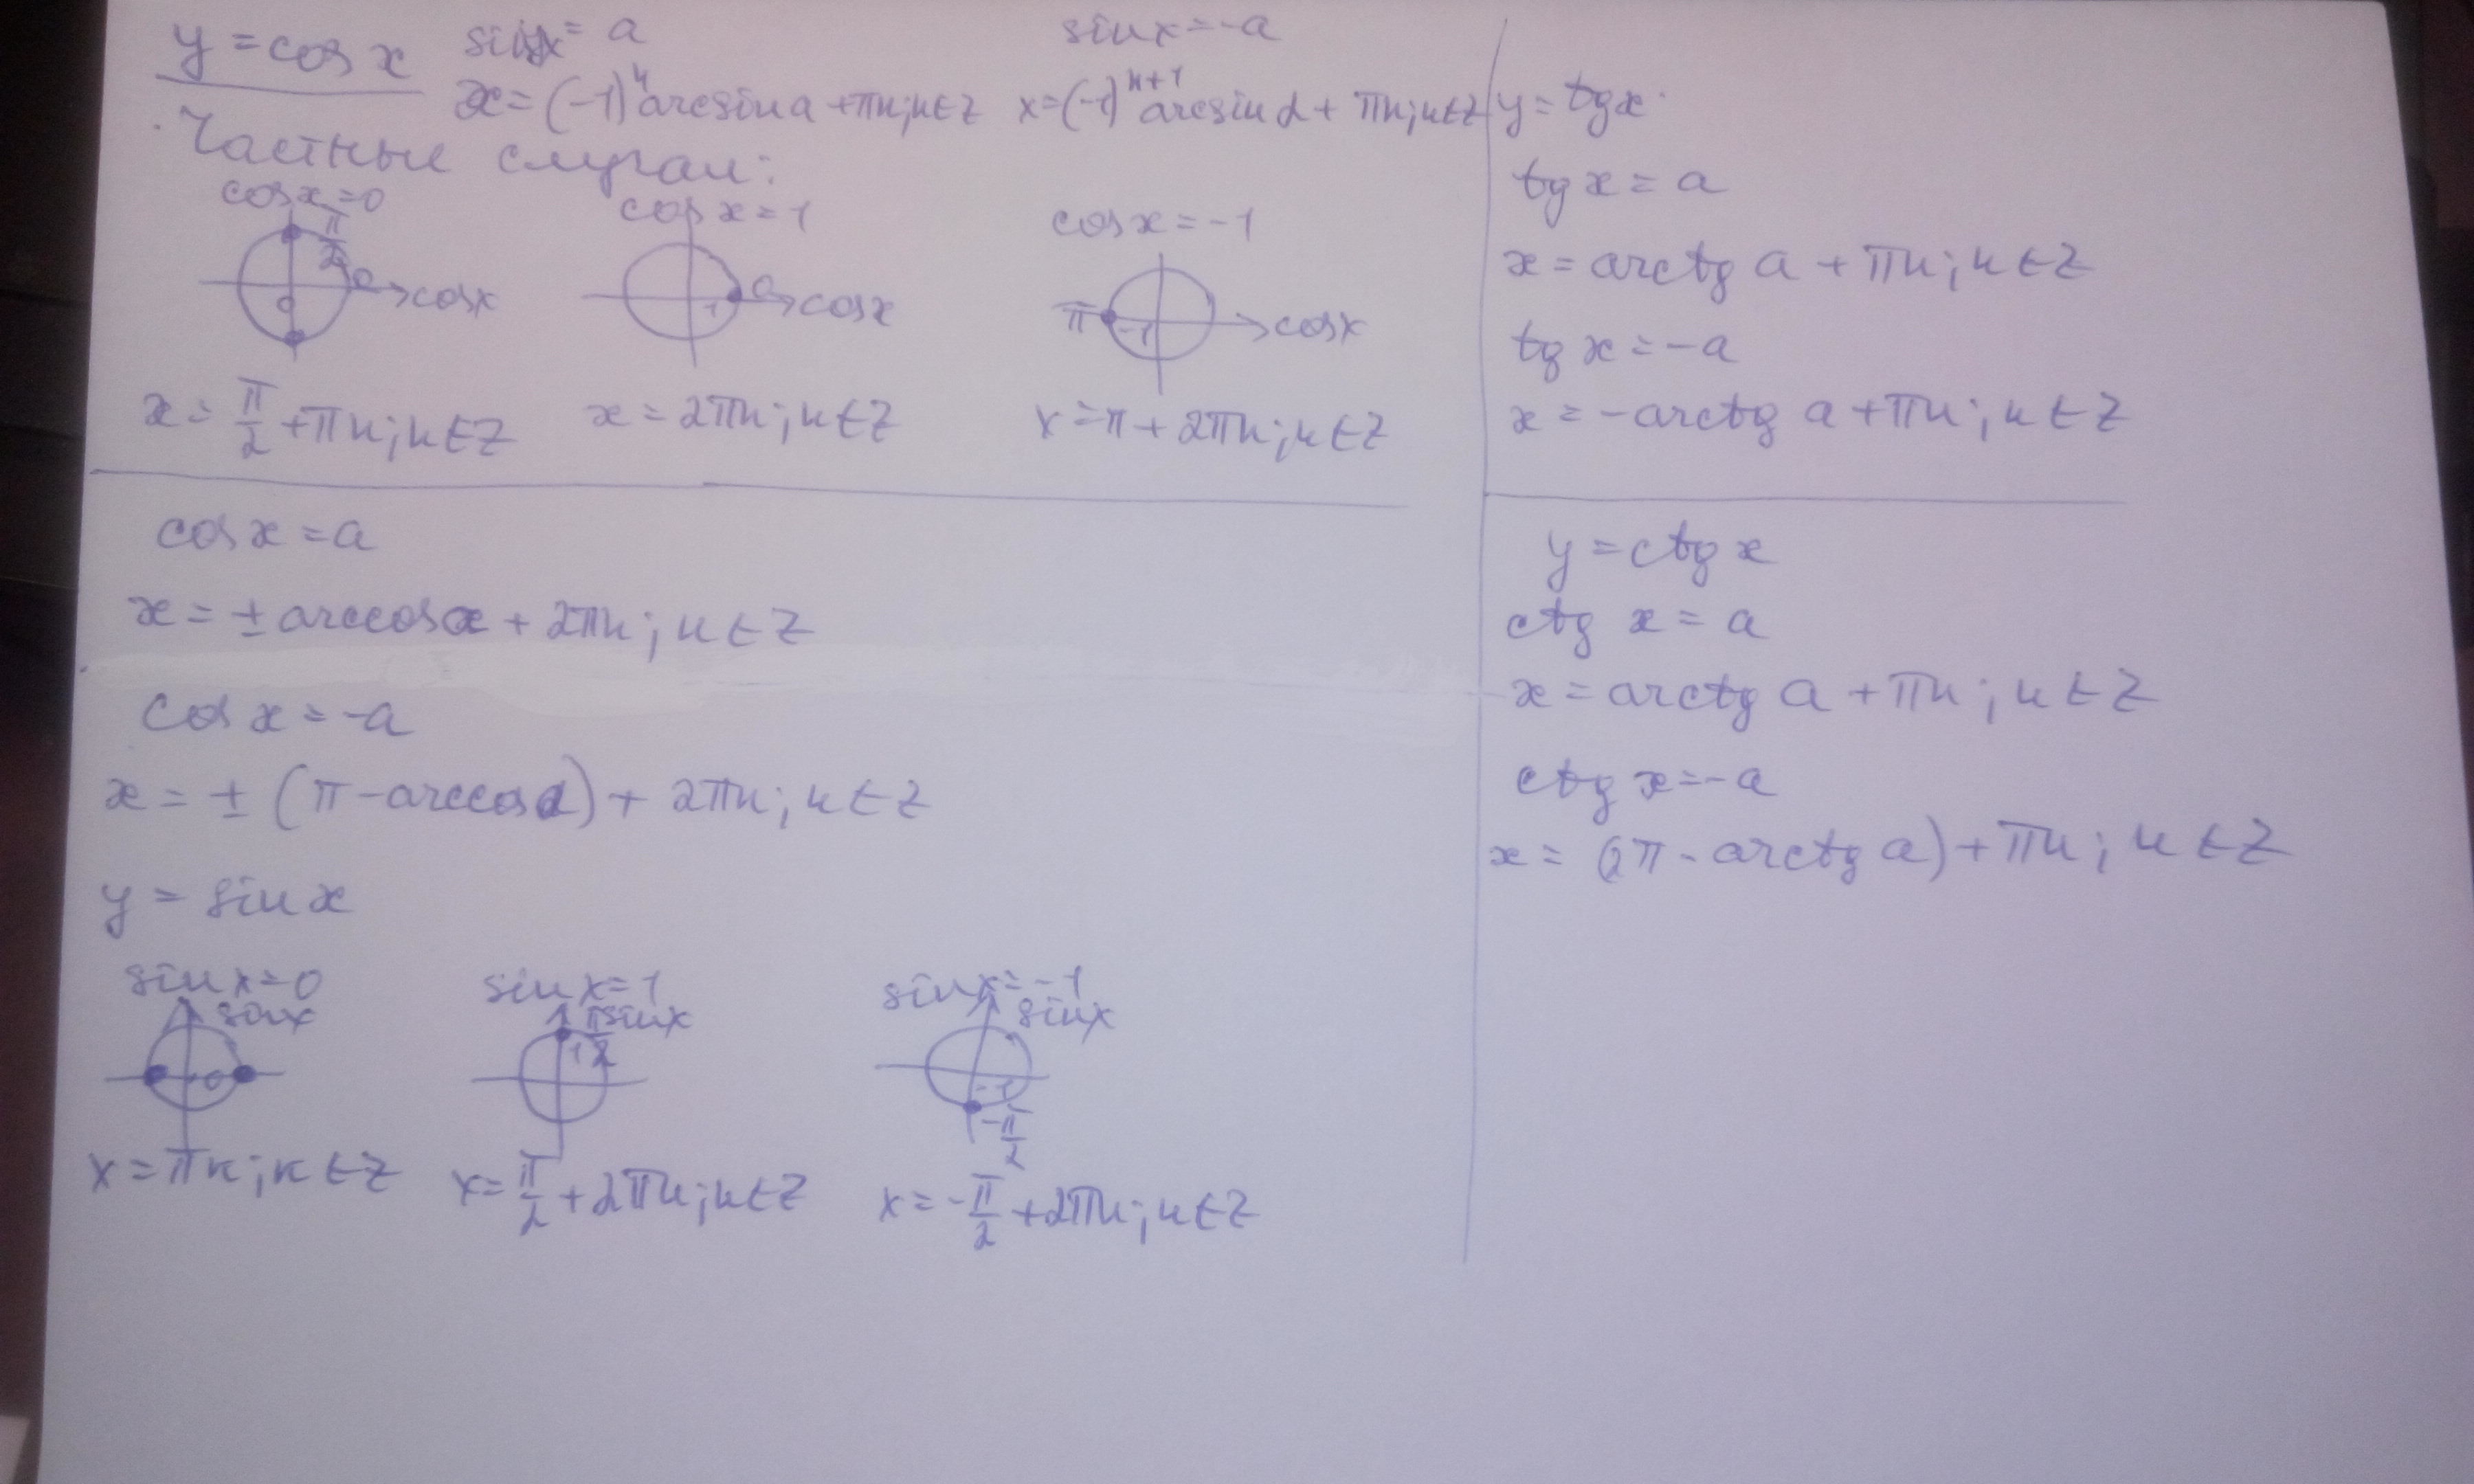 y = cos x
sin x = a
x = (-1)ⁿ arcsin a + πn; n ∈ Z
sin x = -a
x = (-1)ⁿ⁺¹ arcsin a + πn; n ∈ Z
Частные случаи:
cos x = 0
π/2
0
0
cos x
x = π/2 + πn; n ∈ Z
cos x = 1
1
0
cos x
x = 2πn; n ∈ Z
cos x = -1
π
-1
cos x
x = π + 2πn; n ∈ Z
cos x = a
x = ± arccos a + 2πn; n ∈ Z
cos x = -a
x = ± (π - arccos a) + 2πn; n ∈ Z
y = sin x
sin x = 0
sin x
0
x = πк; к ∈ Z
sin x = 1
π/2
sin x
1
x = π/2 + 2πn; n ∈ Z
sin x = -1
sin x
-1
-π/2
x = -π/2 + 2πn; n ∈ Z
y = tg x
tg x = a
x = arctg a + πn; n ∈ Z
tg x = -a
x = -arctg a + πn; n ∈ Z
y = ctg x
ctg x = a
x = arctg a + πn; n ∈ Z
ctg x = -a
x = (2π - arctg a) + πn; n ∈ Z